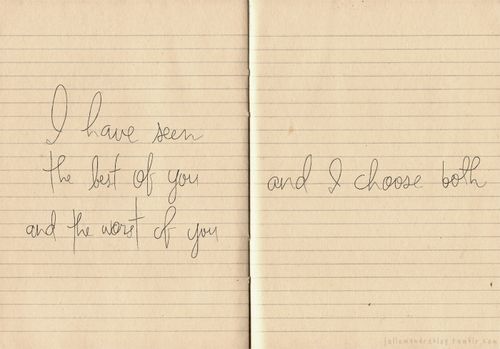 I have seen
the best of you
and the worst of you
and I choose both